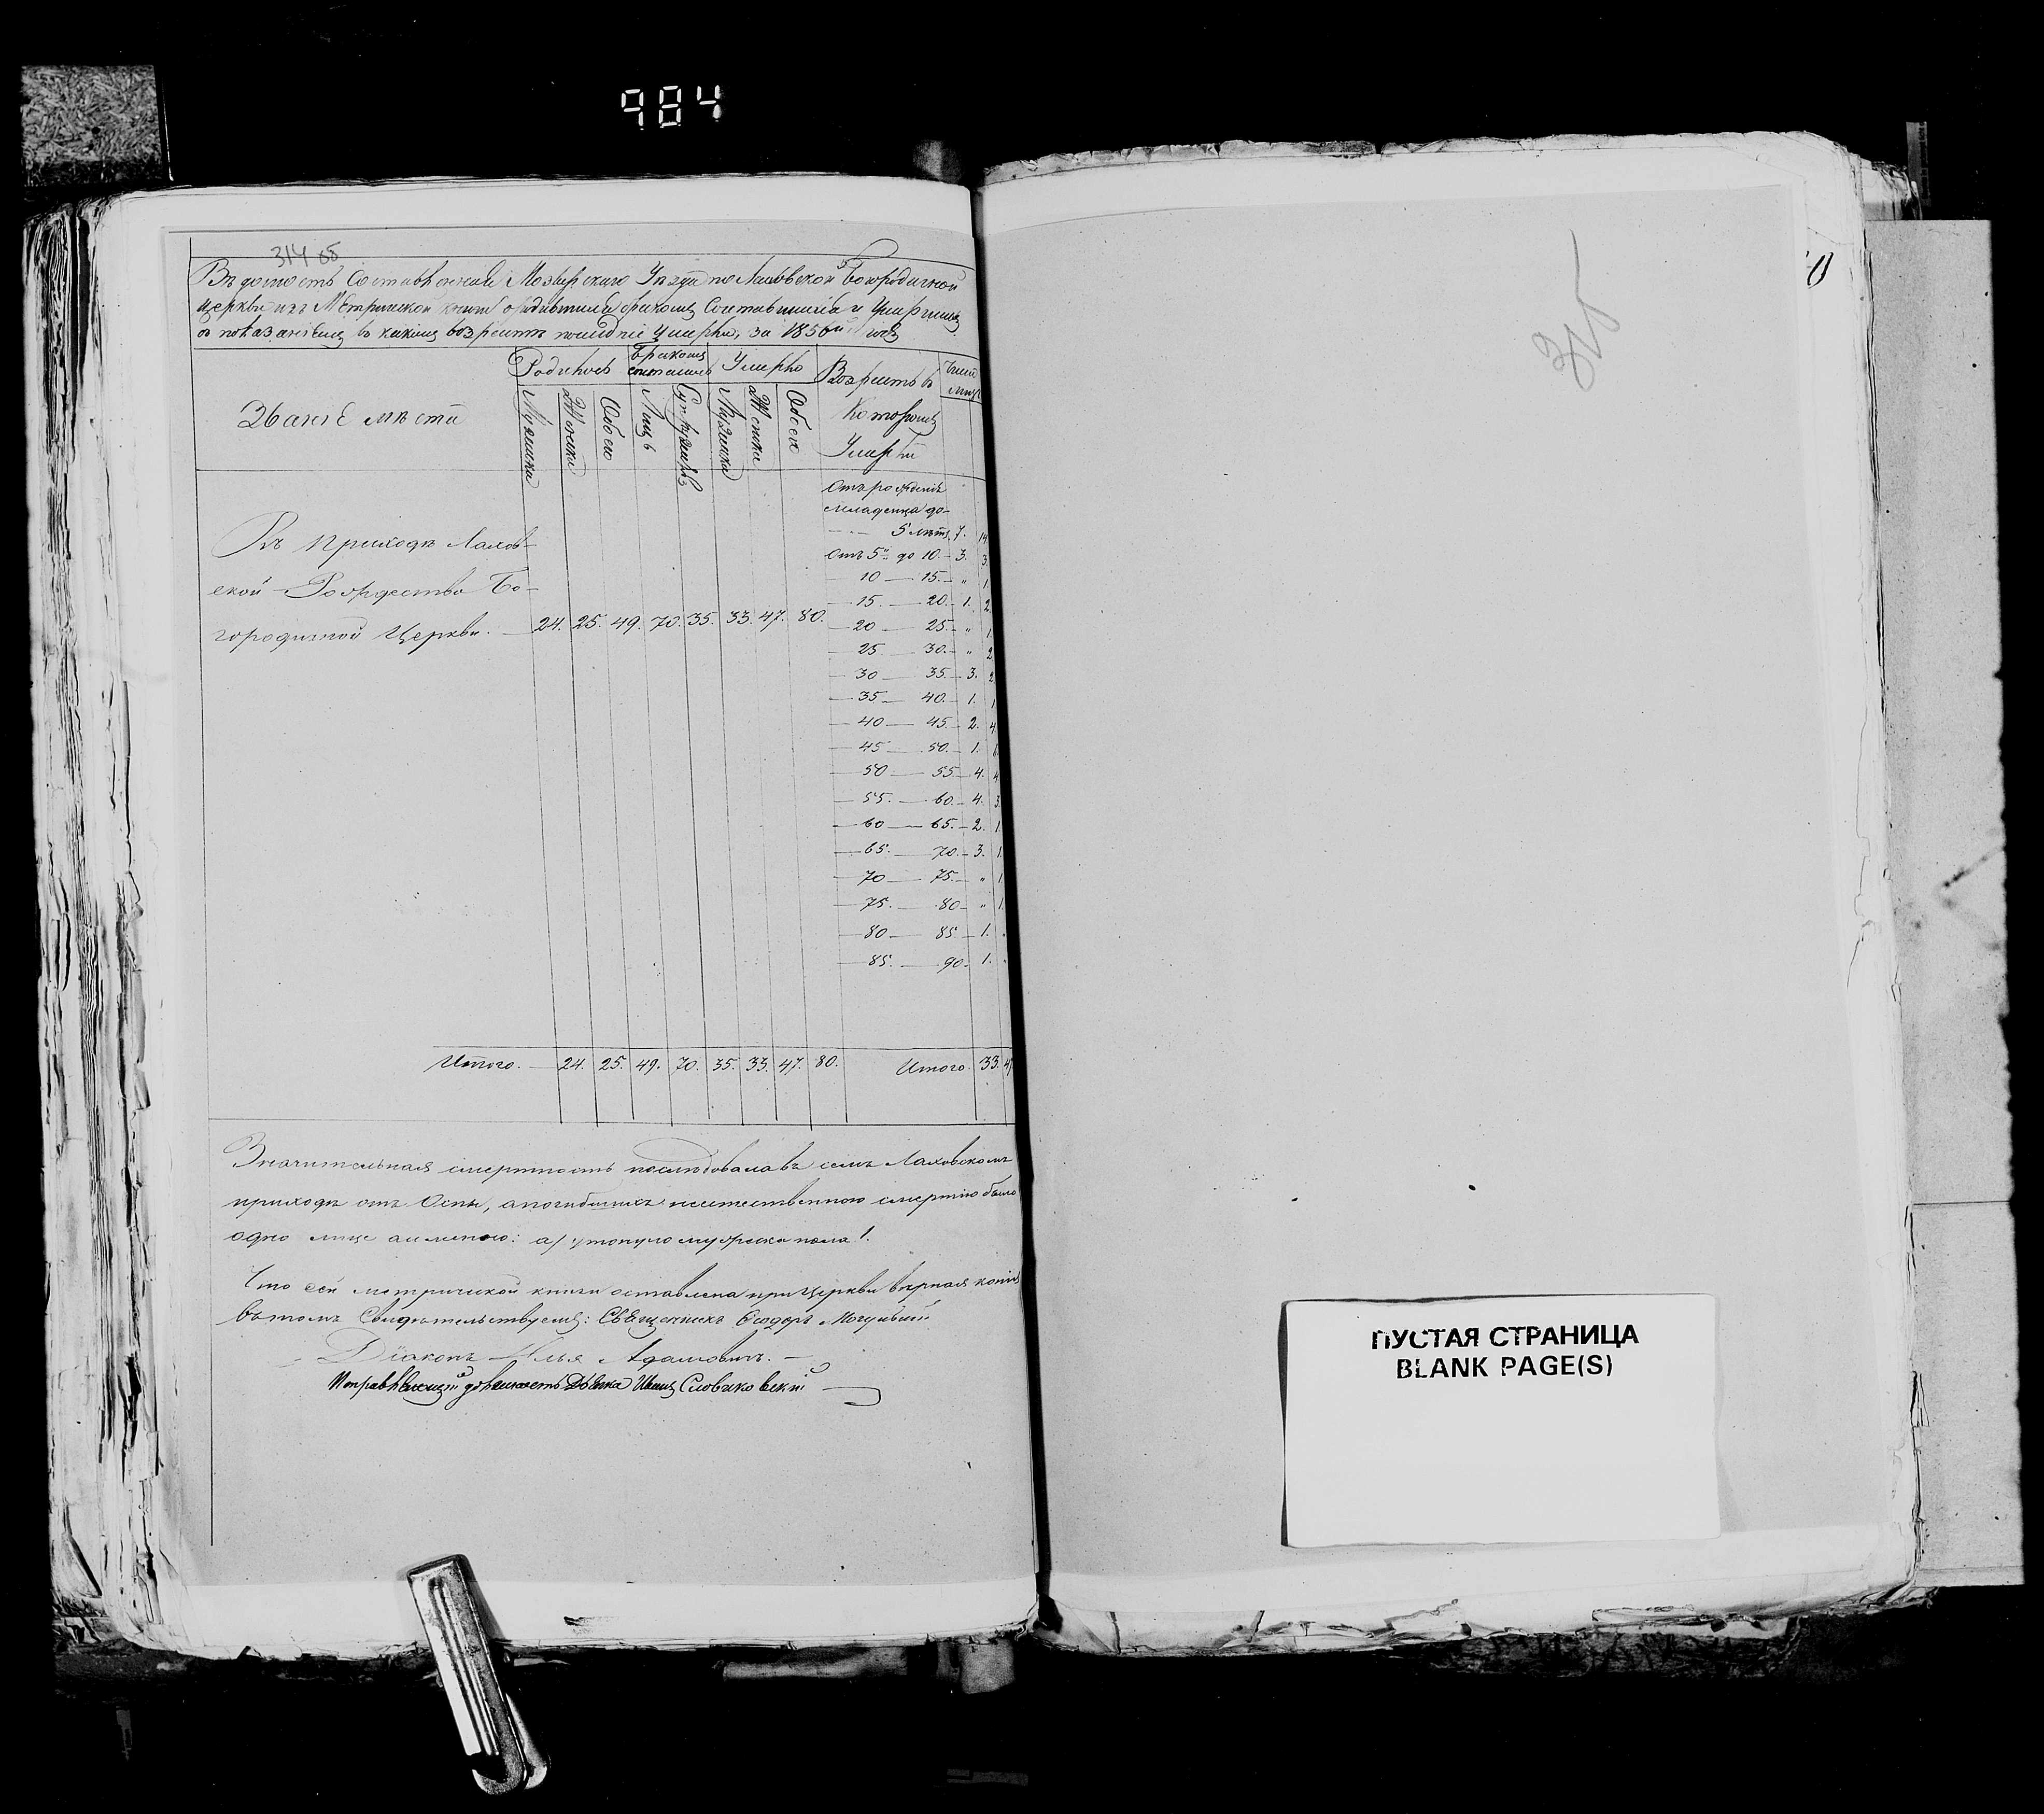 984
314 об
Вѣдомость Составленная Мозырскаго Уѣзда по Лаховской Богородичной
церкви изъ Метрической книги о родившихся бракомъ Сочетавшихся и Умершихъ
съ показаніемъ въ какихъ возрастѣ послѣдніе умерли, за 1856й годъ
Родилось Бракомъ сочеталось Умерло Возрастъ въ Число лицъ
Званіе мѣста Мужска Женска Обоего Лицъ Супружествъ Мужска Женска Обоего Которомъ
Умерли
Отъ рожденія
младенца до
5 лѣтъ 7. 14
Въ приходѣ Лахов-
Отъ 5. до 10. 3. 3.
ской Рождество Бо-
10 — 15. „ 1.
15. — 20. 1. 2.
городичной Церкви. — 24. 25. 49. 70. 35. 33. 47. 80.
20 — 25. „ 1.
25 — 30. „ 2
30 — 35. 3. 2.
35 — 40. 1. 1.
40 — 45. 2. 4.
45 — 50. 1.
50 — 55. 4. 4.
55. — 60. 4. 3.
60 — 65. 2. 1.
65. — 70. 3. 1.
70 — 75. „ 1.
75. — 80 „ 1.
80 — 85 1.
85. — 90. 1.
Итого. — 24. 25. 49. 70. 35. 33. 47. 80. Итого 33. 47
Значительная смертность послѣдовала въ семъ Лаховскомъ
приходѣ отъ Оспы, а погибшихъ неестественною смертію было
одно лице а именно: а) утонуло мужеска пола 1.
Что сей метрической книги оставлена при Церкви вѣрная копія
въ томъ Свидѣтельствуемъ: Священникъ Ѳеодоръ
Діаконъ Илья Адамовичъ.
Исправляющій должность Дьячка Иванъ Словаковскій
315
ПУСТАЯ СТРАНИЦА
BLANK PAGE(S)